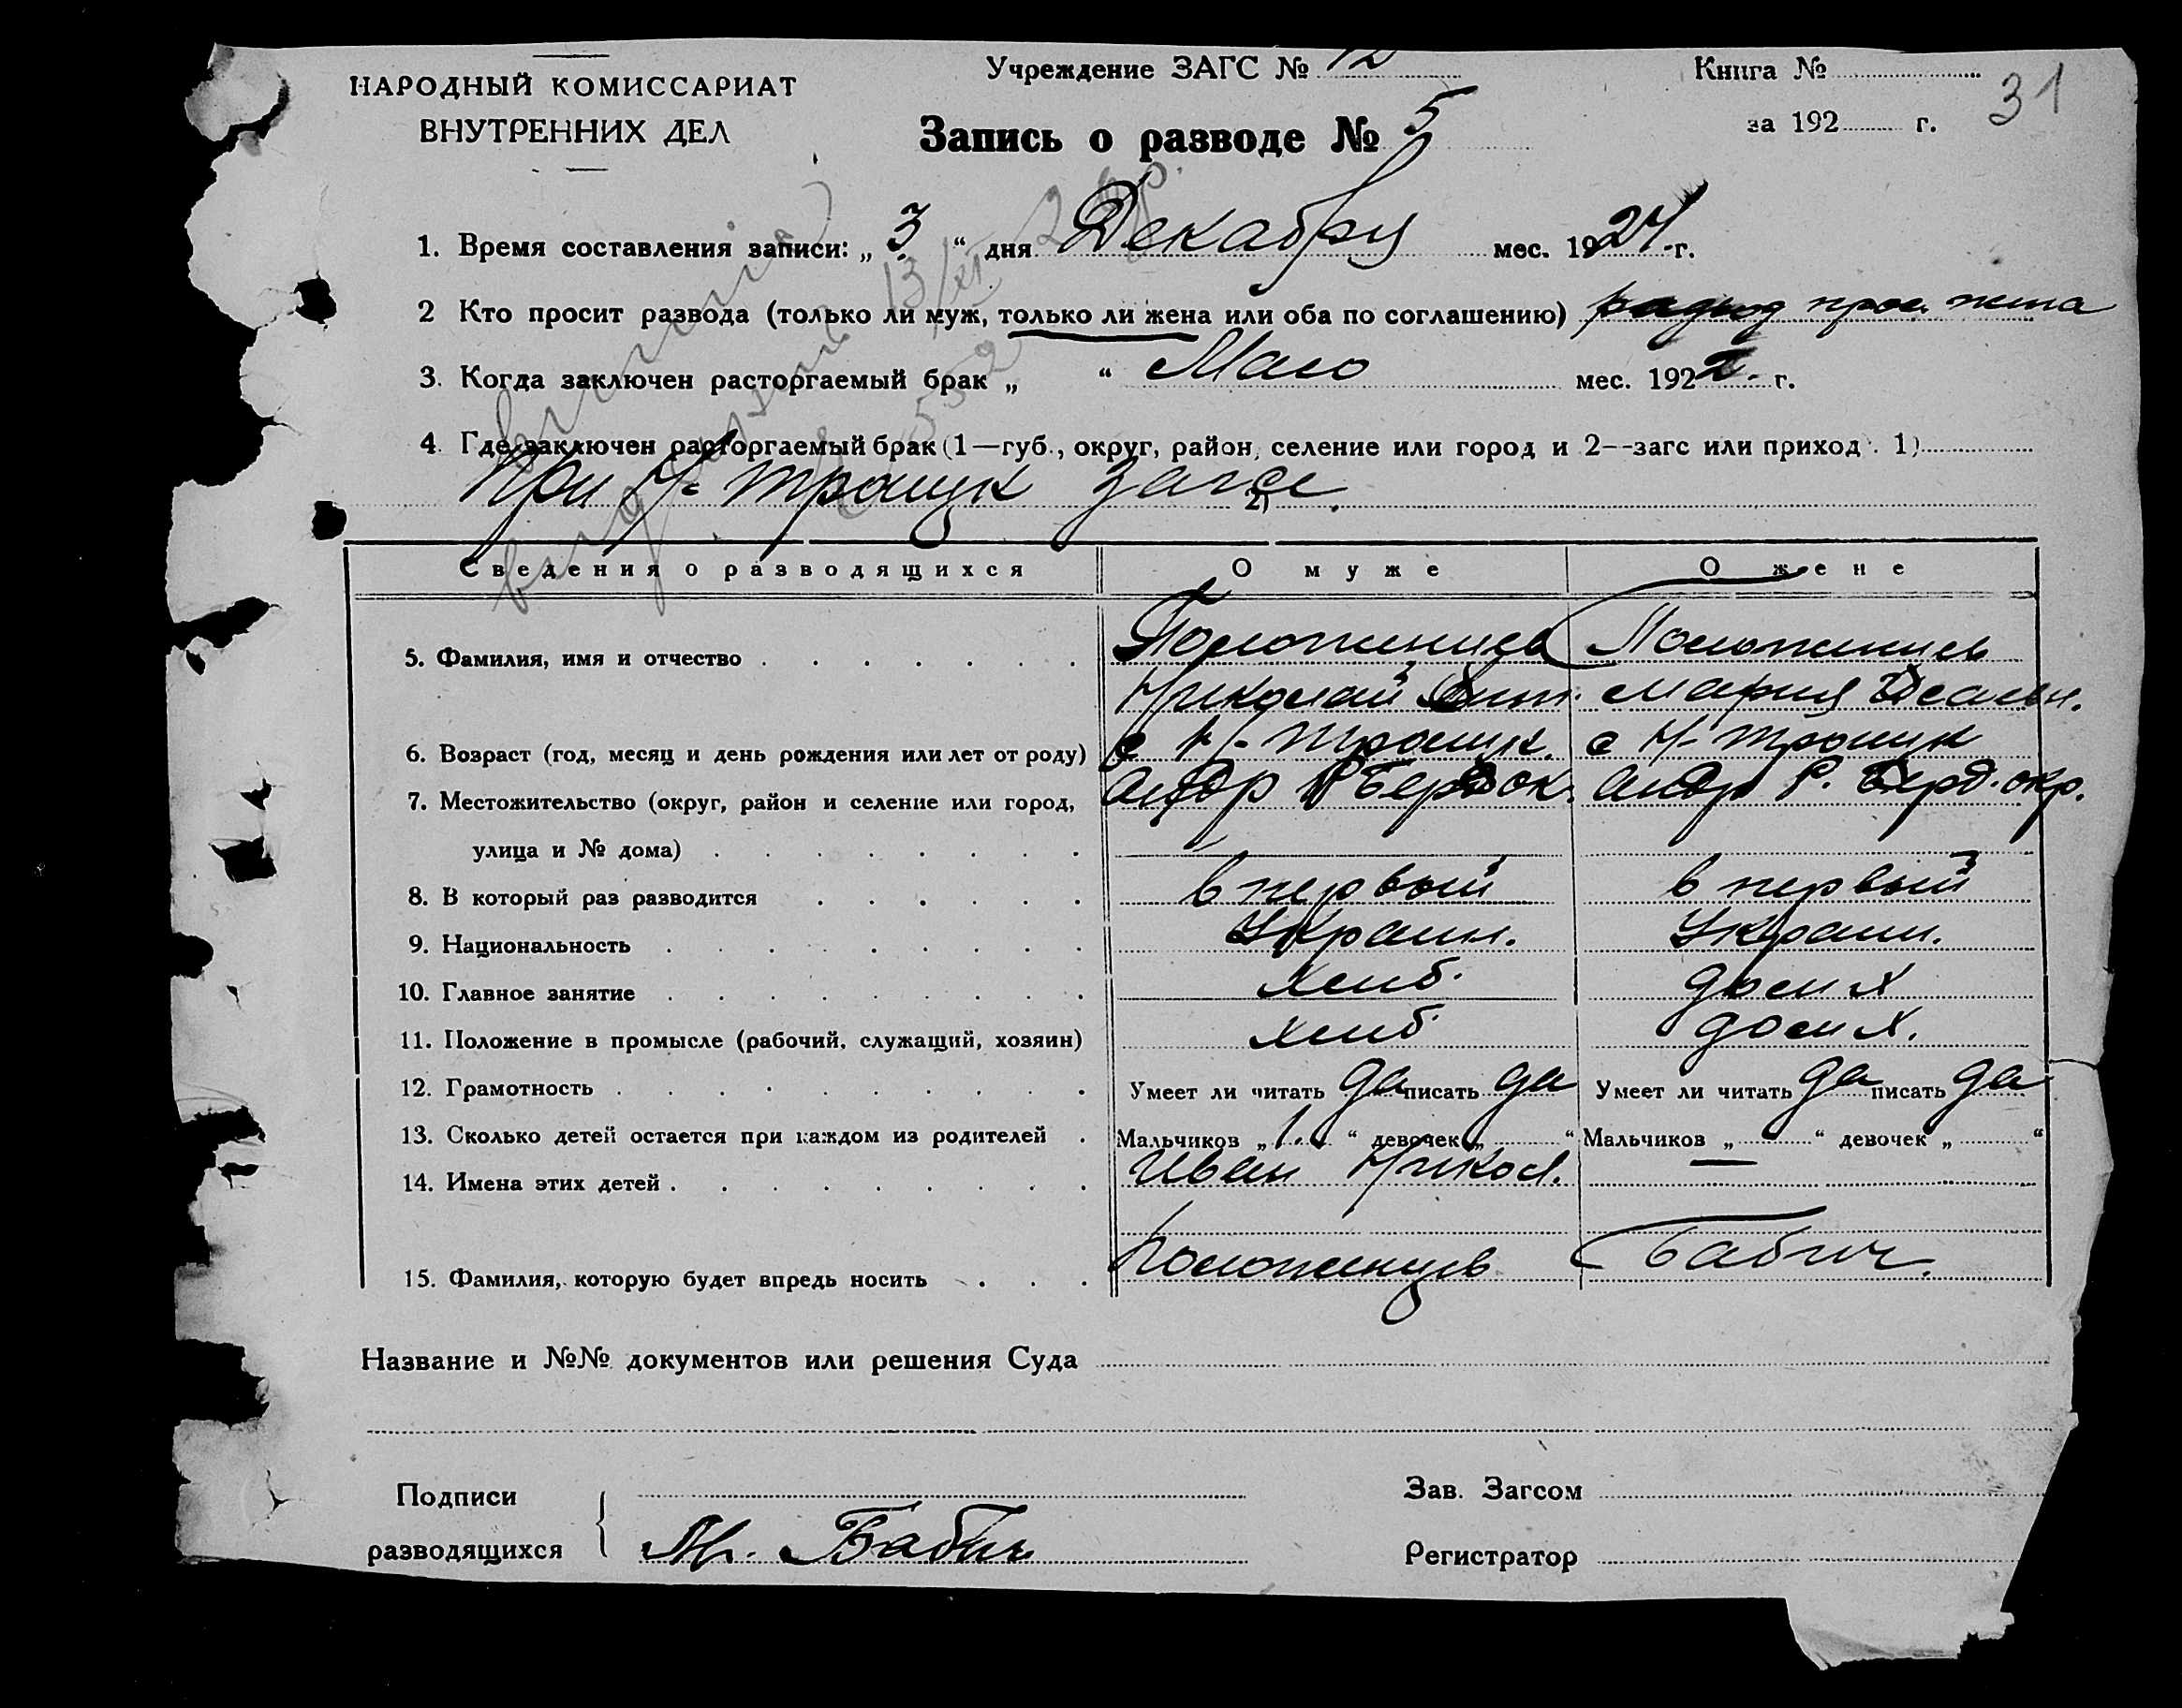 НАРОДНЫЙ КОМИССАРИАТ
ВНУТРЕННИХ ДЕЛ
Учреждение ЗАГС № 12
Книга №
31
за 192 г.
Запись о разводе № 5
1. Время составления записи: „ 3 “ дня Декабря мес. 1924 г.
2 Кто просит развода (только ли муж, только ли жена или оба по соглашению) развод прос. жена
3. Когда заключен расторгаемый брак „ “ Маю мес. 1922 г.
4. Где заключен расторгаемый брак (1—губ., округ, район, селение или город и 2--загс или приход. 1)
При Н-Троицк Загсе 2)
Сведения о разводящихся О муже О жене
5. Фамилия, имя и отчество Положенцев Положенцев
Николай Мария
6. Возраст (год, месяц и день рождения или лет от роду) с Н-Троицк. с Н-Троицк
7. Местожительство (округ, район и селение или город, Андр Р Берд ок. Андр Р. Берд. окр.
улица и № дома)
8. В который раз разводится в первый в первый
9. Национальность Украин. Украин.
10. Главное занятие хлеб. домх
11. Положение в промысле (рабочий, служащий, хозяин) хлеб. домх.
12. Грамотность Умеет ли читать да писать да Умеет ли читать да писать да
13. Сколько детей остается при каждом из родителей Мальчиков „ 1 “ девочек „ “ Мальчиков „ “ девочек „ “
14. Имена этих детей Иван Никол. —
15. Фамилия, которую будет впредь носить Положенцев Бабич.
Название и №№ документов или решения Суда
Подписи
разводящихся
М. Бабич
Зав. Загсом
Регистратор